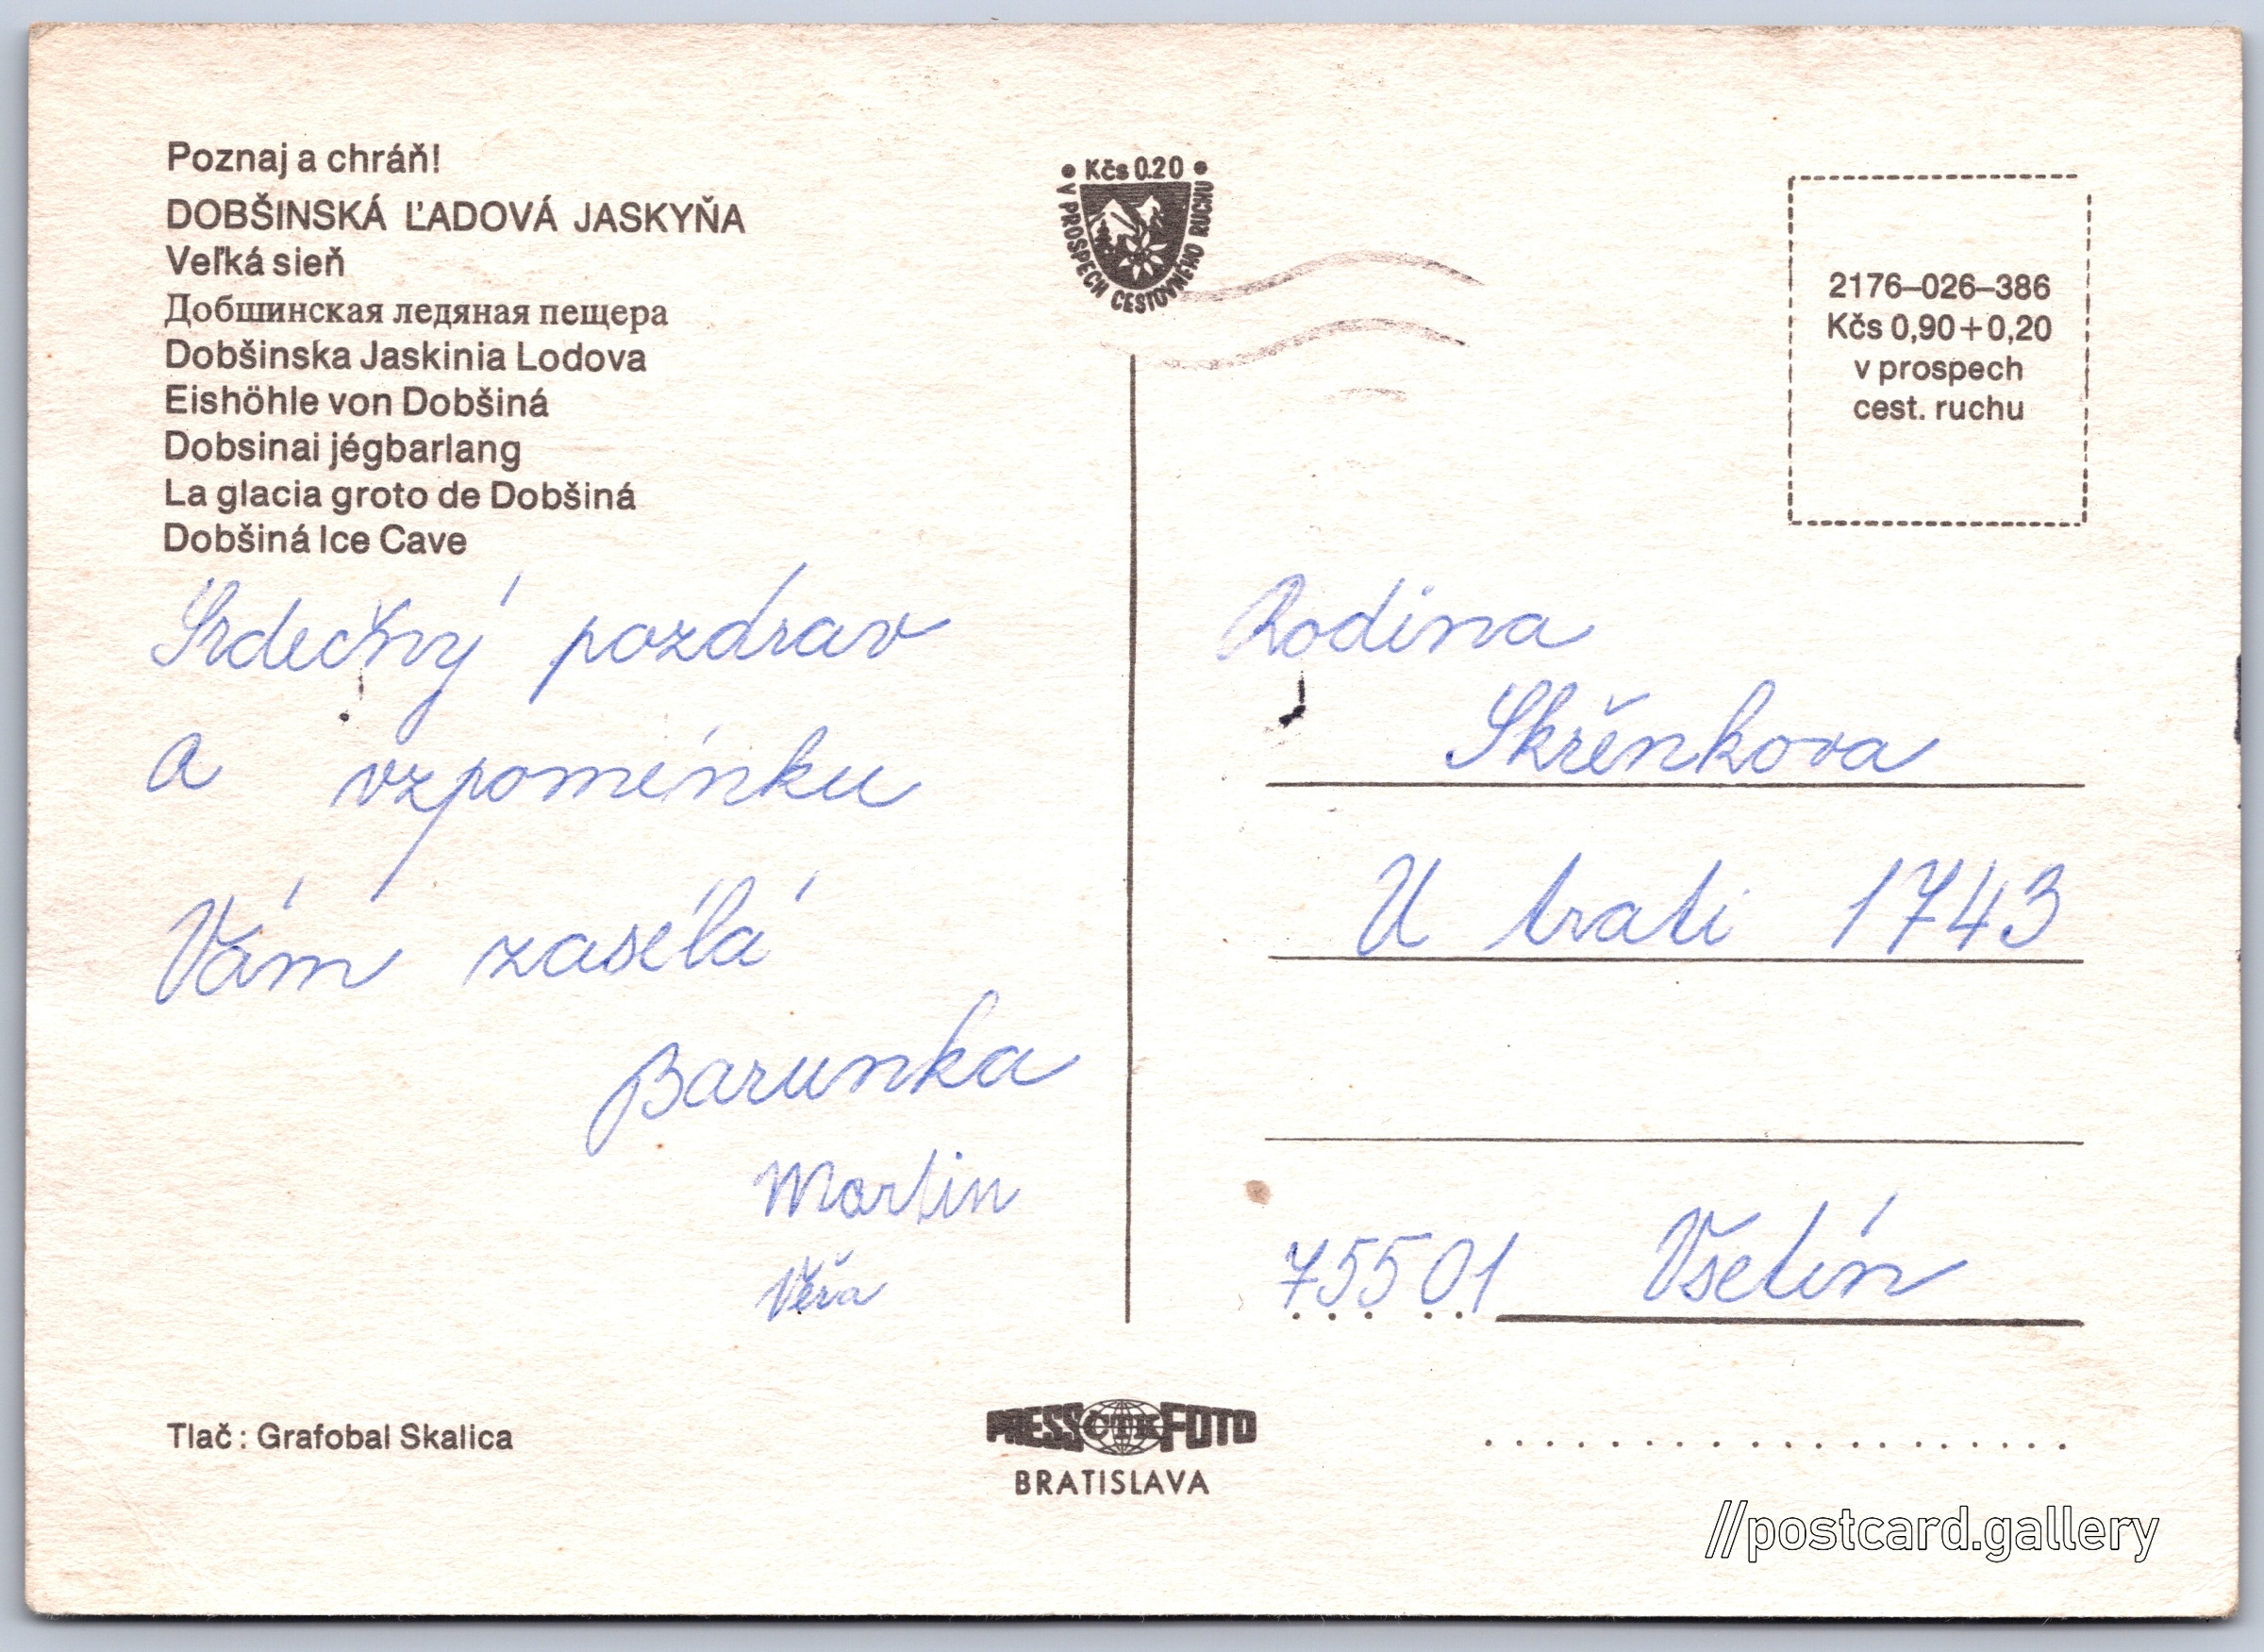 Poznaj a chráň!
DOBŠINSKÁ ĽADOVÁ JASKYŇA
Veľká sieň
Добшинская ледяная пещера
Dobšinska Jaskinia Lodova
Eishöhle von Dobšiná
Dobsinai jégbarlang
La glacia groto de Dobšiná
Dobšiná Ice Cave
Srdečný pozdrav
a vzpomínku
Vám zasílá
Barunka
Martin
Věra
Tlač: Grafobal Skalica
• Kčs 0.20 •
V PROSPECH CESTOVNÉHO RUCHU
PRESS ČTK FOTO
BRATISLAVA
2176–026–386
Kčs 0,90+0,20
v prospech
cest. ruchu
Rodina
Skřěnkova
U trati 1743
75501 Vsetín
//postcard.gallery